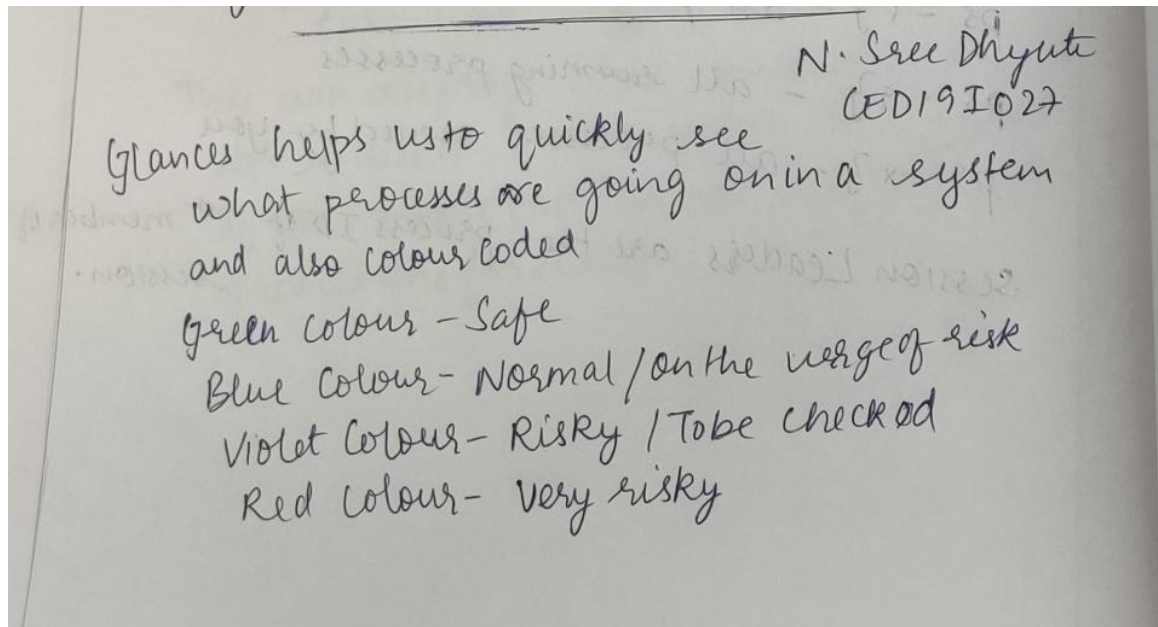 N. Sree Dhyuti
CED19I027
Glances helps us to quickly see
what processes are going on in a system
and also colour coded
Green colour - Safe
Blue Colour - Normal / on the verge of risk
Violet Colour - Risky / To be checked
Red Colour - Very risky